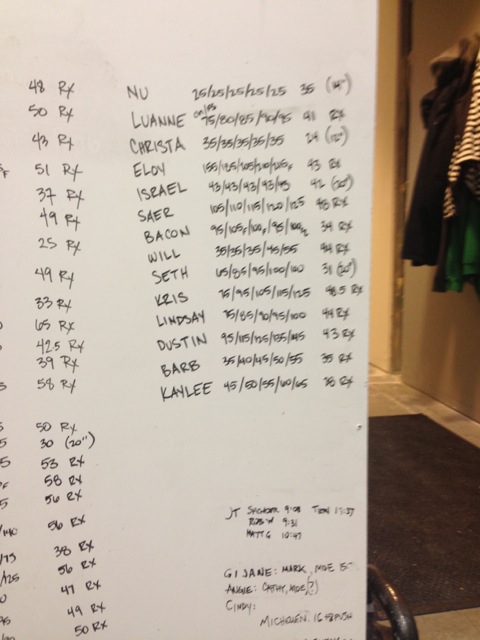 48 RX
50 RX
43 RX
51 RX
37 RX
49 RX
25 RX
49 RX
33 RX
65 RX
42.5 RX
39 RX
58 RX
50 RX
30 (20")
53 RX
58 RX
56 RX
56 RX
38 RX
56 RX
47 RX
49 RX
50 RX
NU 25/25/25/25/25 35 (14")
LUANNE 75/80/85/90/95 41 RX
CHRISTA 35/35/35/35/35 24 (12")
ELOY 43 RX
ISRAEL 43/43/43/43/43 42 (20")
SAER 105/110/115/120/125 48 RX
BACON 34 RX
WILL 35/35/35/45/55 44 RX
SETH 65/85/95/100/100 31 (20")
KRIS 75/95/105/115/125 48.5 RX
LINDSAY 75/85/90/95/100 44 RX
DUSTIN 95/115/125/135/145 43 RX
BARB 35/40/45/50/55 35 RX
KAYLEE 45/50/55/60/65 38 RX
JT 9:08
9:31
MATT G 10:47
GI JANE: MARK,
ANGIE: CATHY,
CINDY: